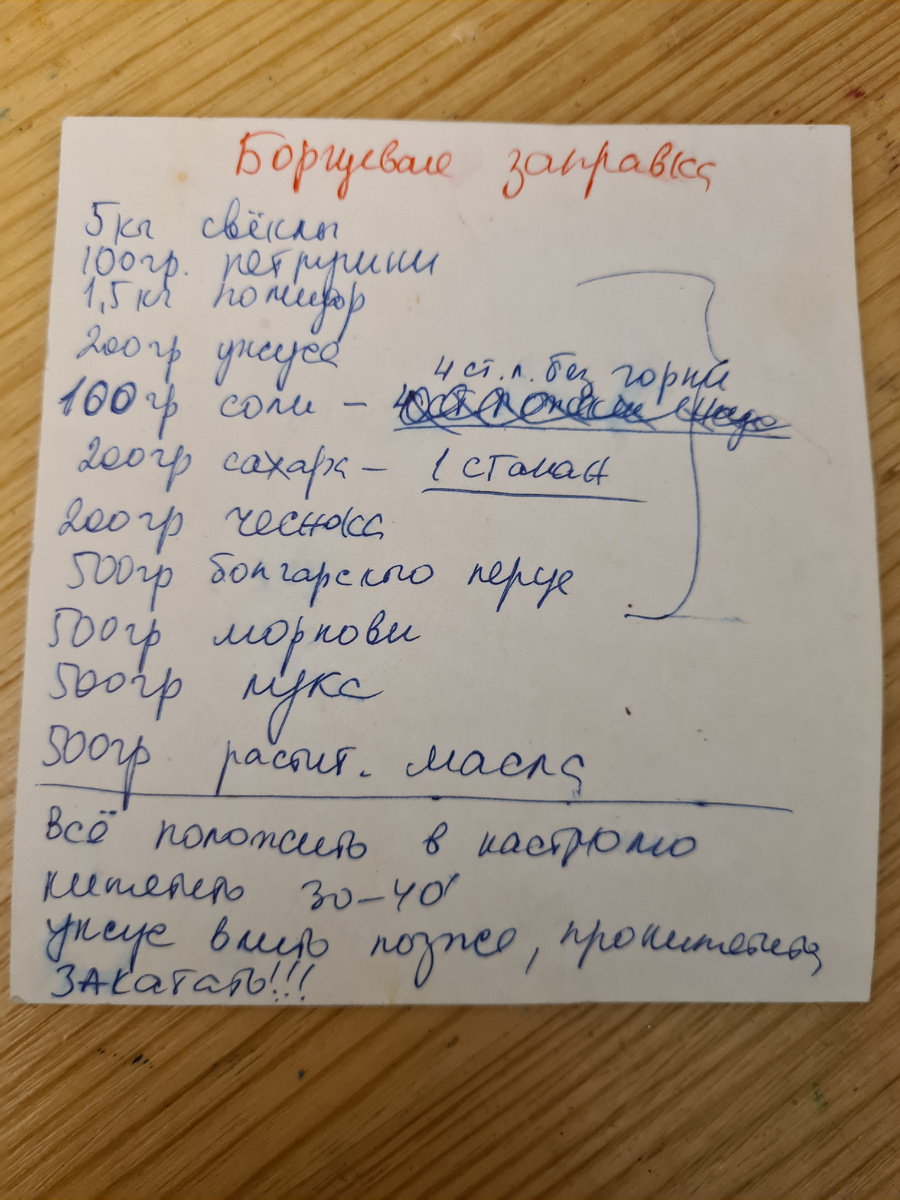 Борщевая заправка
5кг свёклы
100гр. петрушки
1,5кг помидор
200гр уксуса
4 ст. л. без горки
100гр соли –
200гр сахара – 1 стакан
200гр чеснока
500гр болгарского перца
500гр моркови
500гр лука
500гр растит. масла
Всё положить в кастрюлю
кипятить 30–40'
уксус влить позже, прокипятить
ЗАКАТАТЬ!!!